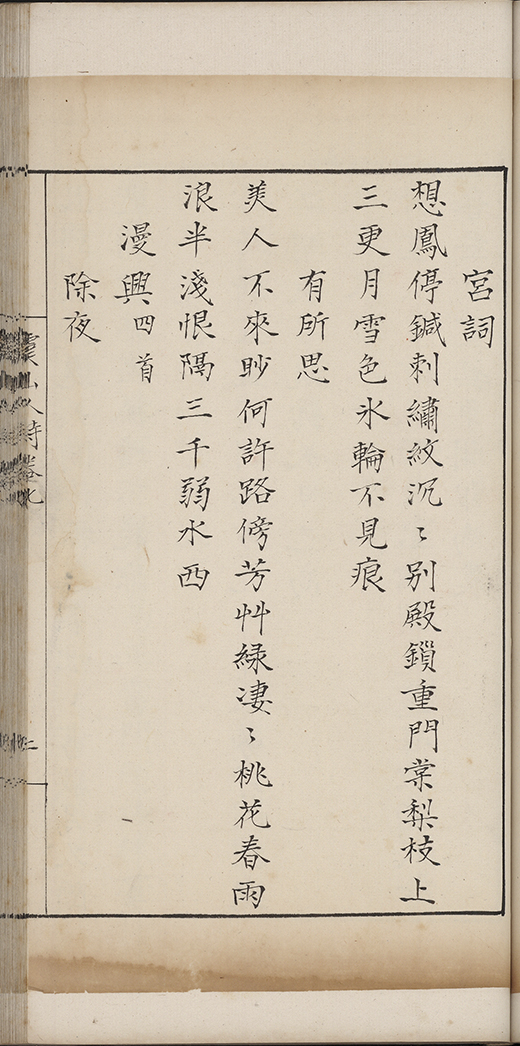 宮詞
想鳳停鍼刺繡紋沉〻別殿鎖重門棠梨枝上
三更月雪色氷輪不見痕
有所思
美人不來眇何許路傍芳艸綠凄〻桃花春雨
浪半淺恨隔三千弱水西
漫興四首
除夜